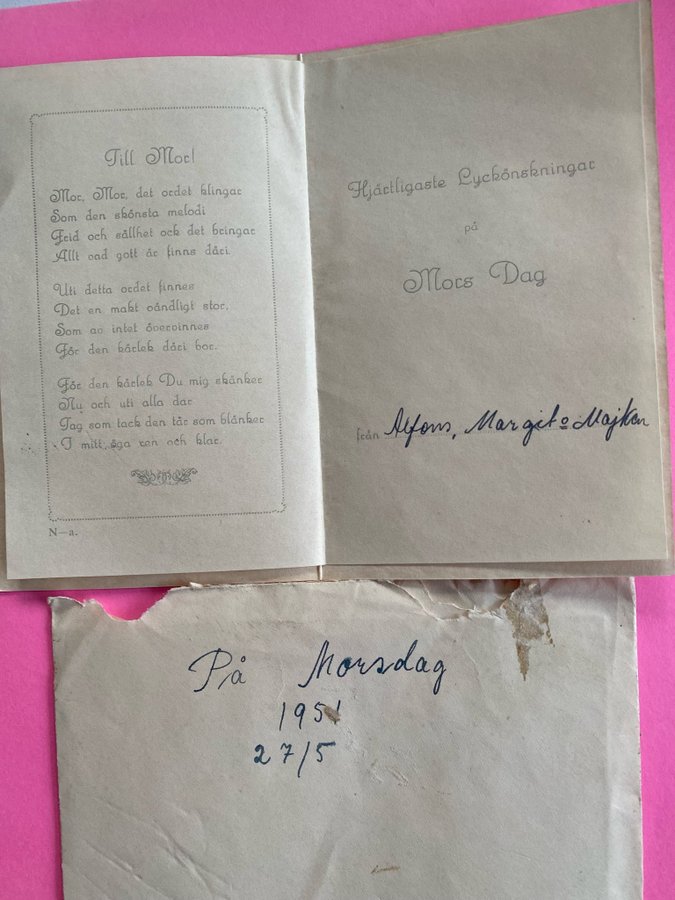 Till Mor!
Mor, Mor, det ordet klingar
Som den skönsta melodi
Frid och sällhet ock det bringar
Allt vad gott är finns däri.
Uti detta ordet finnes
Det en makt oändligt stor,
Som av intet övervinnes
För den kärlek däri bor.
För den kärlek Du mig skänker
Nu och uti alla dar
Tag som tack den tår som blänker
I mitt öga ren och klar.
N—a.
Hjärtligaste Lyckönskningar
på
Mors Dag
från Alfons, Margit o Majken
På Morsdag
1951
27/5